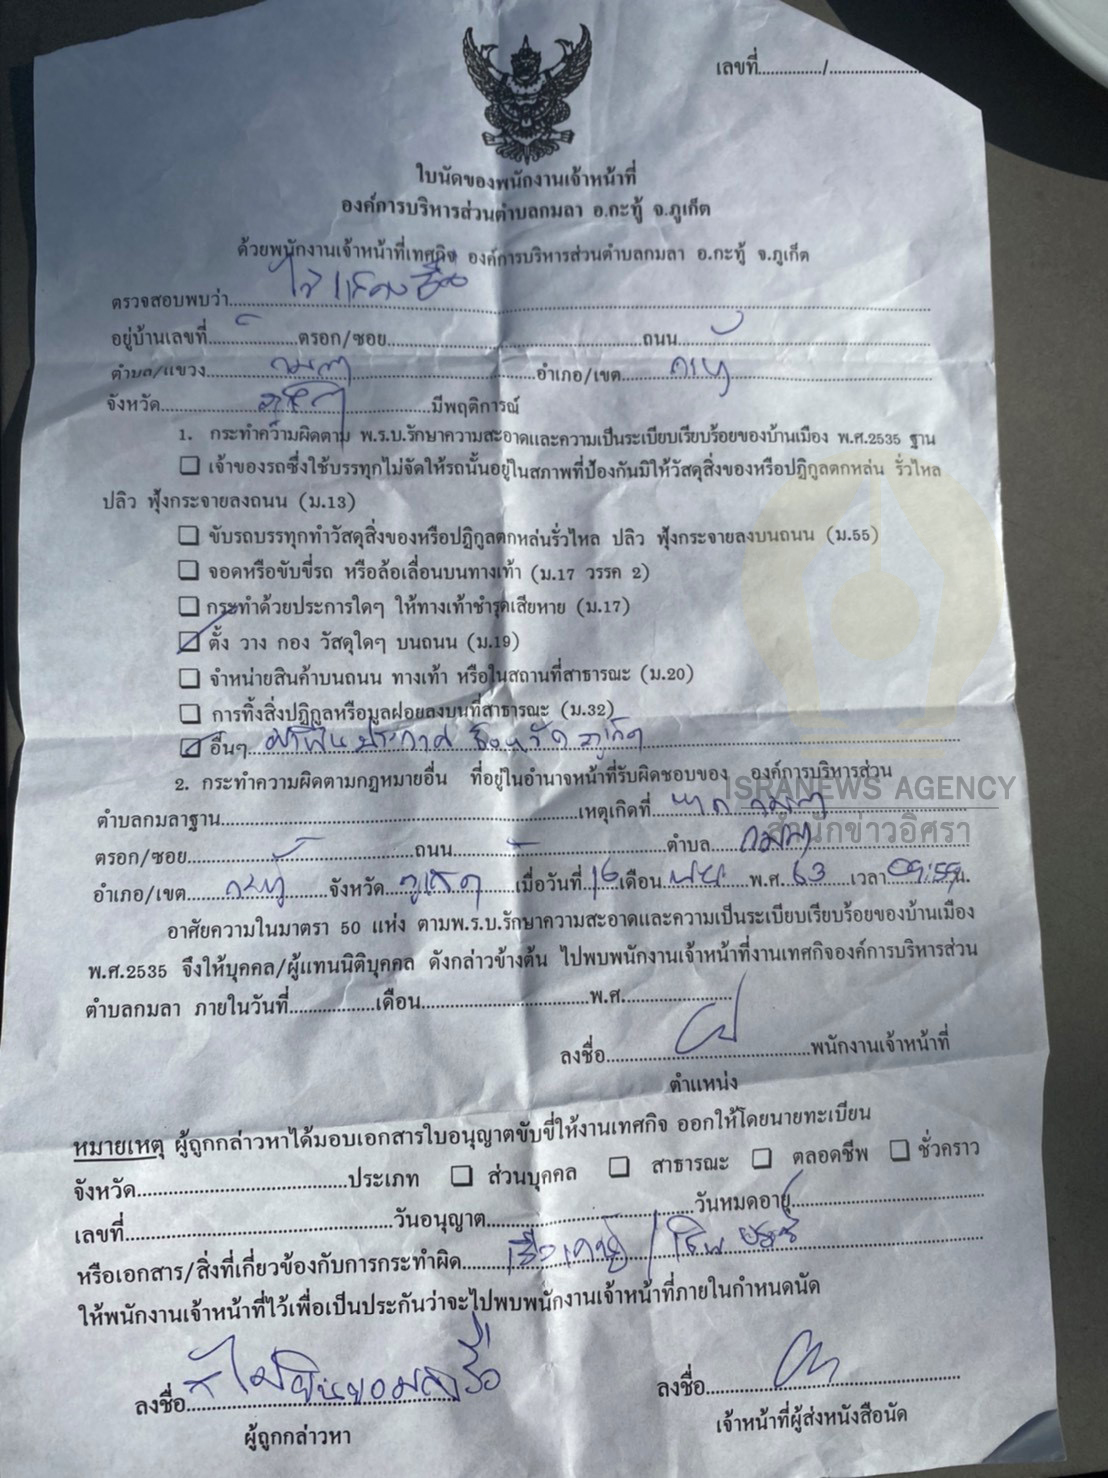 เลขที่............../......................
ใบนัดของพนักงานเจ้าหน้าที่
องค์การบริหารส่วนตำบลกมลา อ.กะทู้ จ.ภูเก็ต
ด้วยพนักงานเจ้าหน้าที่เทศกิจ องค์การบริหารส่วนตำบลกมลา อ.กะทู้ จ.ภูเก็ต
ตรวจสอบพบว่า
อยู่บ้านเลขที่....................ตรอก/ซอย..................................................ถนน
ตำบล/แขวง กมลา อำเภอ/เขต กะทู้
จังหวัด ภูเก็ต มีพฤติการณ์
1. กระทำความผิดตาม พ.ร.บ.รักษาความสะอาดและความเป็นระเบียบเรียบร้อยของบ้านเมือง พ.ศ.2535 ฐาน
❑ เจ้าของรถซึ่งใช้บรรทุกไม่จัดให้รถนั้นอยู่ในสภาพที่ป้องกันมิให้วัสดุสิ่งของหรือปฏิกูลตกหล่น รั่วไหล
ปลิว ฟุ้งกระจายลงถนน (ม.13)
❑ ขับรถบรรทุกทำวัสดุสิ่งของหรือปฏิกูลตกหล่นรั่วไหล ปลิว ฟุ้งกระจายลงบนถนน (ม.55)
❑ จอดหรือขับขี่รถ หรือล้อเลื่อนบนทางเท้า (ม.17 วรรค 2)
❑ กระทำด้วยประการใดๆ ให้ทางเท้าชำรุดเสียหาย (ม.17)
☑ ตั้ง วาง กอง วัสดุใดๆ บนถนน (ม.19)
❑ จำหน่ายสินค้าบนถนน ทางเท้า หรือในสถานที่สาธารณะ (ม.20)
❑ การทิ้งสิ่งปฏิกูลหรือมูลฝอยลงบนที่สาธารณะ (ม.32)
☑ อื่นๆ ฝ่าฝืนประกาศ จังหวัดภูเก็ต
2. กระทำความผิดตามกฎหมายอื่น ที่อยู่ในอำนาจหน้าที่รับผิดชอบของ องค์การบริหารส่วน
ISRANEWS AGENCY
ตำบลกมลาฐาน.......................................................เหตุเกิดที่ หาดกมลา
สำนักข่าวอิศรา
ตรอก/ซอย..................................ถนน..................................ตำบล กมลา
อำเภอ/เขต กะทู้ จังหวัด ภูเก็ต เมื่อวันที่ 16 เดือน พ.ศ. 63 เวลา 09:59 น.
อาศัยความในมาตรา 50 แห่ง ตามพ.ร.บ.รักษาความสะอาดและความเป็นระเบียบเรียบร้อยของบ้านเมือง
พ.ศ.2535 จึงให้บุคคล/ผู้แทนนิติบุคคล ดังกล่าวข้างต้น ไปพบพนักงานเจ้าหน้าที่งานเทศกิจองค์การบริหารส่วน
ตำบลกมลา ภายในวันที่..................เดือน..............................พ.ศ.......................
ลงชื่อ.................................พนักงานเจ้าหน้าที่
ตำแหน่ง
หมายเหตุ ผู้ถูกกล่าวหาได้มอบเอกสารใบอนุญาตขับขี่ให้งานเทศกิจ ออกให้โดยนายทะเบียน
จังหวัด...................................ประเภท ❑ ส่วนบุคคล ❑ สาธารณะ ❑ ตลอดชีพ ❑ ชั่วคราว
เลขที่............................................วันอนุญาต...................................วันหมดอายุ...............................
หรือเอกสาร/สิ่งที่เกี่ยวข้องกับการกระทำผิด
ให้พนักงานเจ้าหน้าที่ไว้เพื่อเป็นประกันว่าจะไปพบพนักงานเจ้าหน้าที่ภายในกำหนดนัด
ลงชื่อ ไม่ยินยอมลงชื่อ
ลงชื่อ.......................................
ผู้ถูกกล่าวหา
เจ้าหน้าที่ผู้ส่งหนังสือนัด